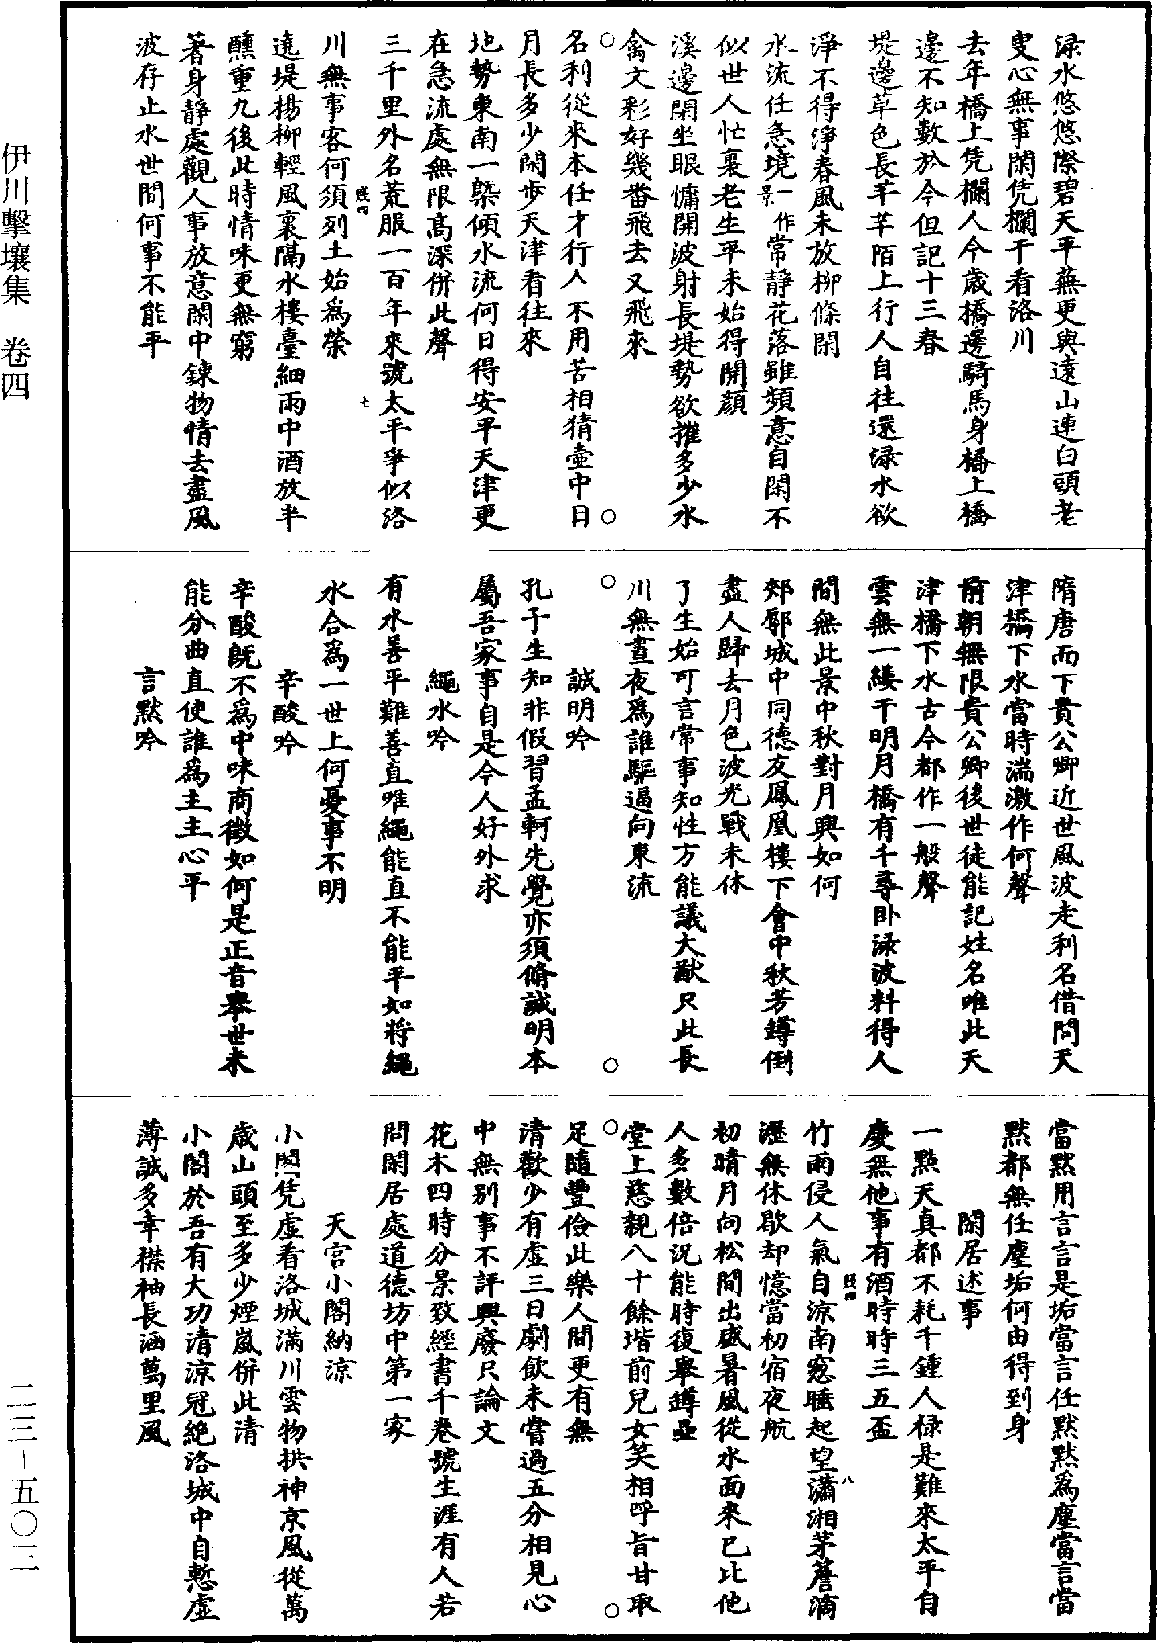 淥水悠悠際碧天平蕪更與遠山連白頭老
叟心無事閑凭欄干看洛川
去年橋上凭欄人今歲橋邊騎馬身橋上橋
邊不知數於今但記十三春
堤邊草色長芊芊陌上行人自往還淥水欲
淨不得淨春風未放柳條閑
水流任急境一作景常靜花落雖頻意自閑不
似世人忙裏老生平未始得開顏
溪邊閑坐眼慵開波射長堤勢欲摧多少水
禽文彩好幾番飛去又飛來
名利從來本任才行人不用苦相猜壷中日
月長多少閑步天津看往來
地勢東南一槩傾水流何日得安平天津更
在急流處無限高深併此聲
三千里外名荒服一百年來號太平爭似洛
川無事客何須列土始爲榮
賤四
七
遶堤楊柳輕風裏隔水樓臺細雨中酒放半
醺重九後此時情味更無窮
著身靜處觀人事放意閑中鍊物情去盡風
波存止水世間何事不能平
隋唐而下貴公卿近世風波走利名借問天
津橋下水當時湍激作何聲
前朝無限貴公卿後世徒能記姓名唯此天
津橋下水古今都作一般聲
雲無一縷干明月橋有千尋卧淥波料得人
間無此景中秋對月興如何
郟鄏城中同德友鳳凰樓下會中秋芳罇倒
盡人歸去月色波光戰未休
了生始可言常事知性方能議大猷只此長
川無晝夜爲誰驅逼向東流
誠明吟
孔子生知非假習孟軻先覺亦須脩誠明本
屬吾家事自是今人好外求
繩水吟
有水善平難善直唯繩能直不能平如將繩
水合爲一世上何憂事不明
辛酸吟
辛酸旣不爲中味商徵如何是正音舉世未
能分曲直使誰爲主主心平
言默吟
當默用言言是垢當言任默默爲塵當言當
默都無任塵垢何由得到身
閑居述事
一點天真都不耗千鍾人祿是難來太平自
慶無他事有酒時時三五盃
賤四
八
竹雨侵人氣自涼南窓睡起望瀟湘茅簷滴
瀝無休歇却憶當初宿夜航
初晴月向松間出盛暑風從水面來已比他
人多數倍況能時復舉罇罍
堂上慈親八十餘堦前兒女笑相呼旨甘取
足隨豐儉此樂人間更有無
清歡少有虛三日劇飲未嘗過五分相見心
中無別事不評興廢只論文
花木四時分景致經書千卷號生涯有人若
問閑居處道德坊中第一家
天宮小閣納涼
小閣凭虛看洛城滿川雲物拱神京風從萬
歲山頭至多少煙嵐併此清
小閣於吾有大功清涼冠絶洛城中自慙虛
薄誠多幸襟袖長涵萬里風
伊川擊壤集 卷四
二三-五〇二